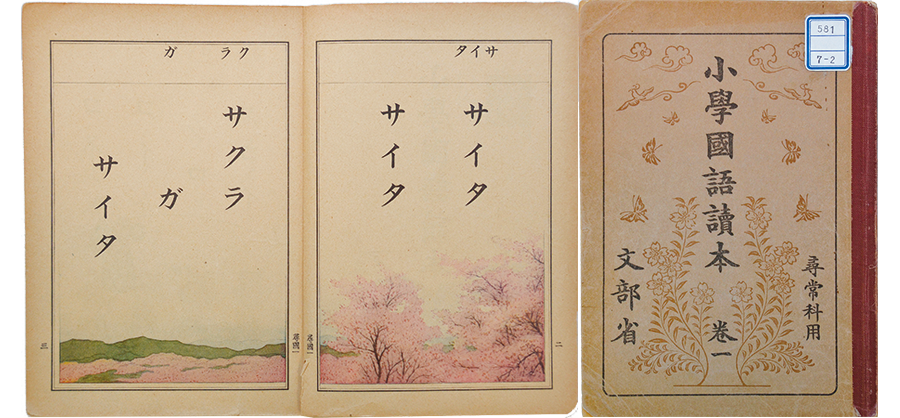 581
7-2
尋常科用
小學國語讀本 卷一
文部省
サイタ
サイタ
サイタ
二
尋國一
クラ ガ
サクラ
ガ
サイタ
三
尋國一